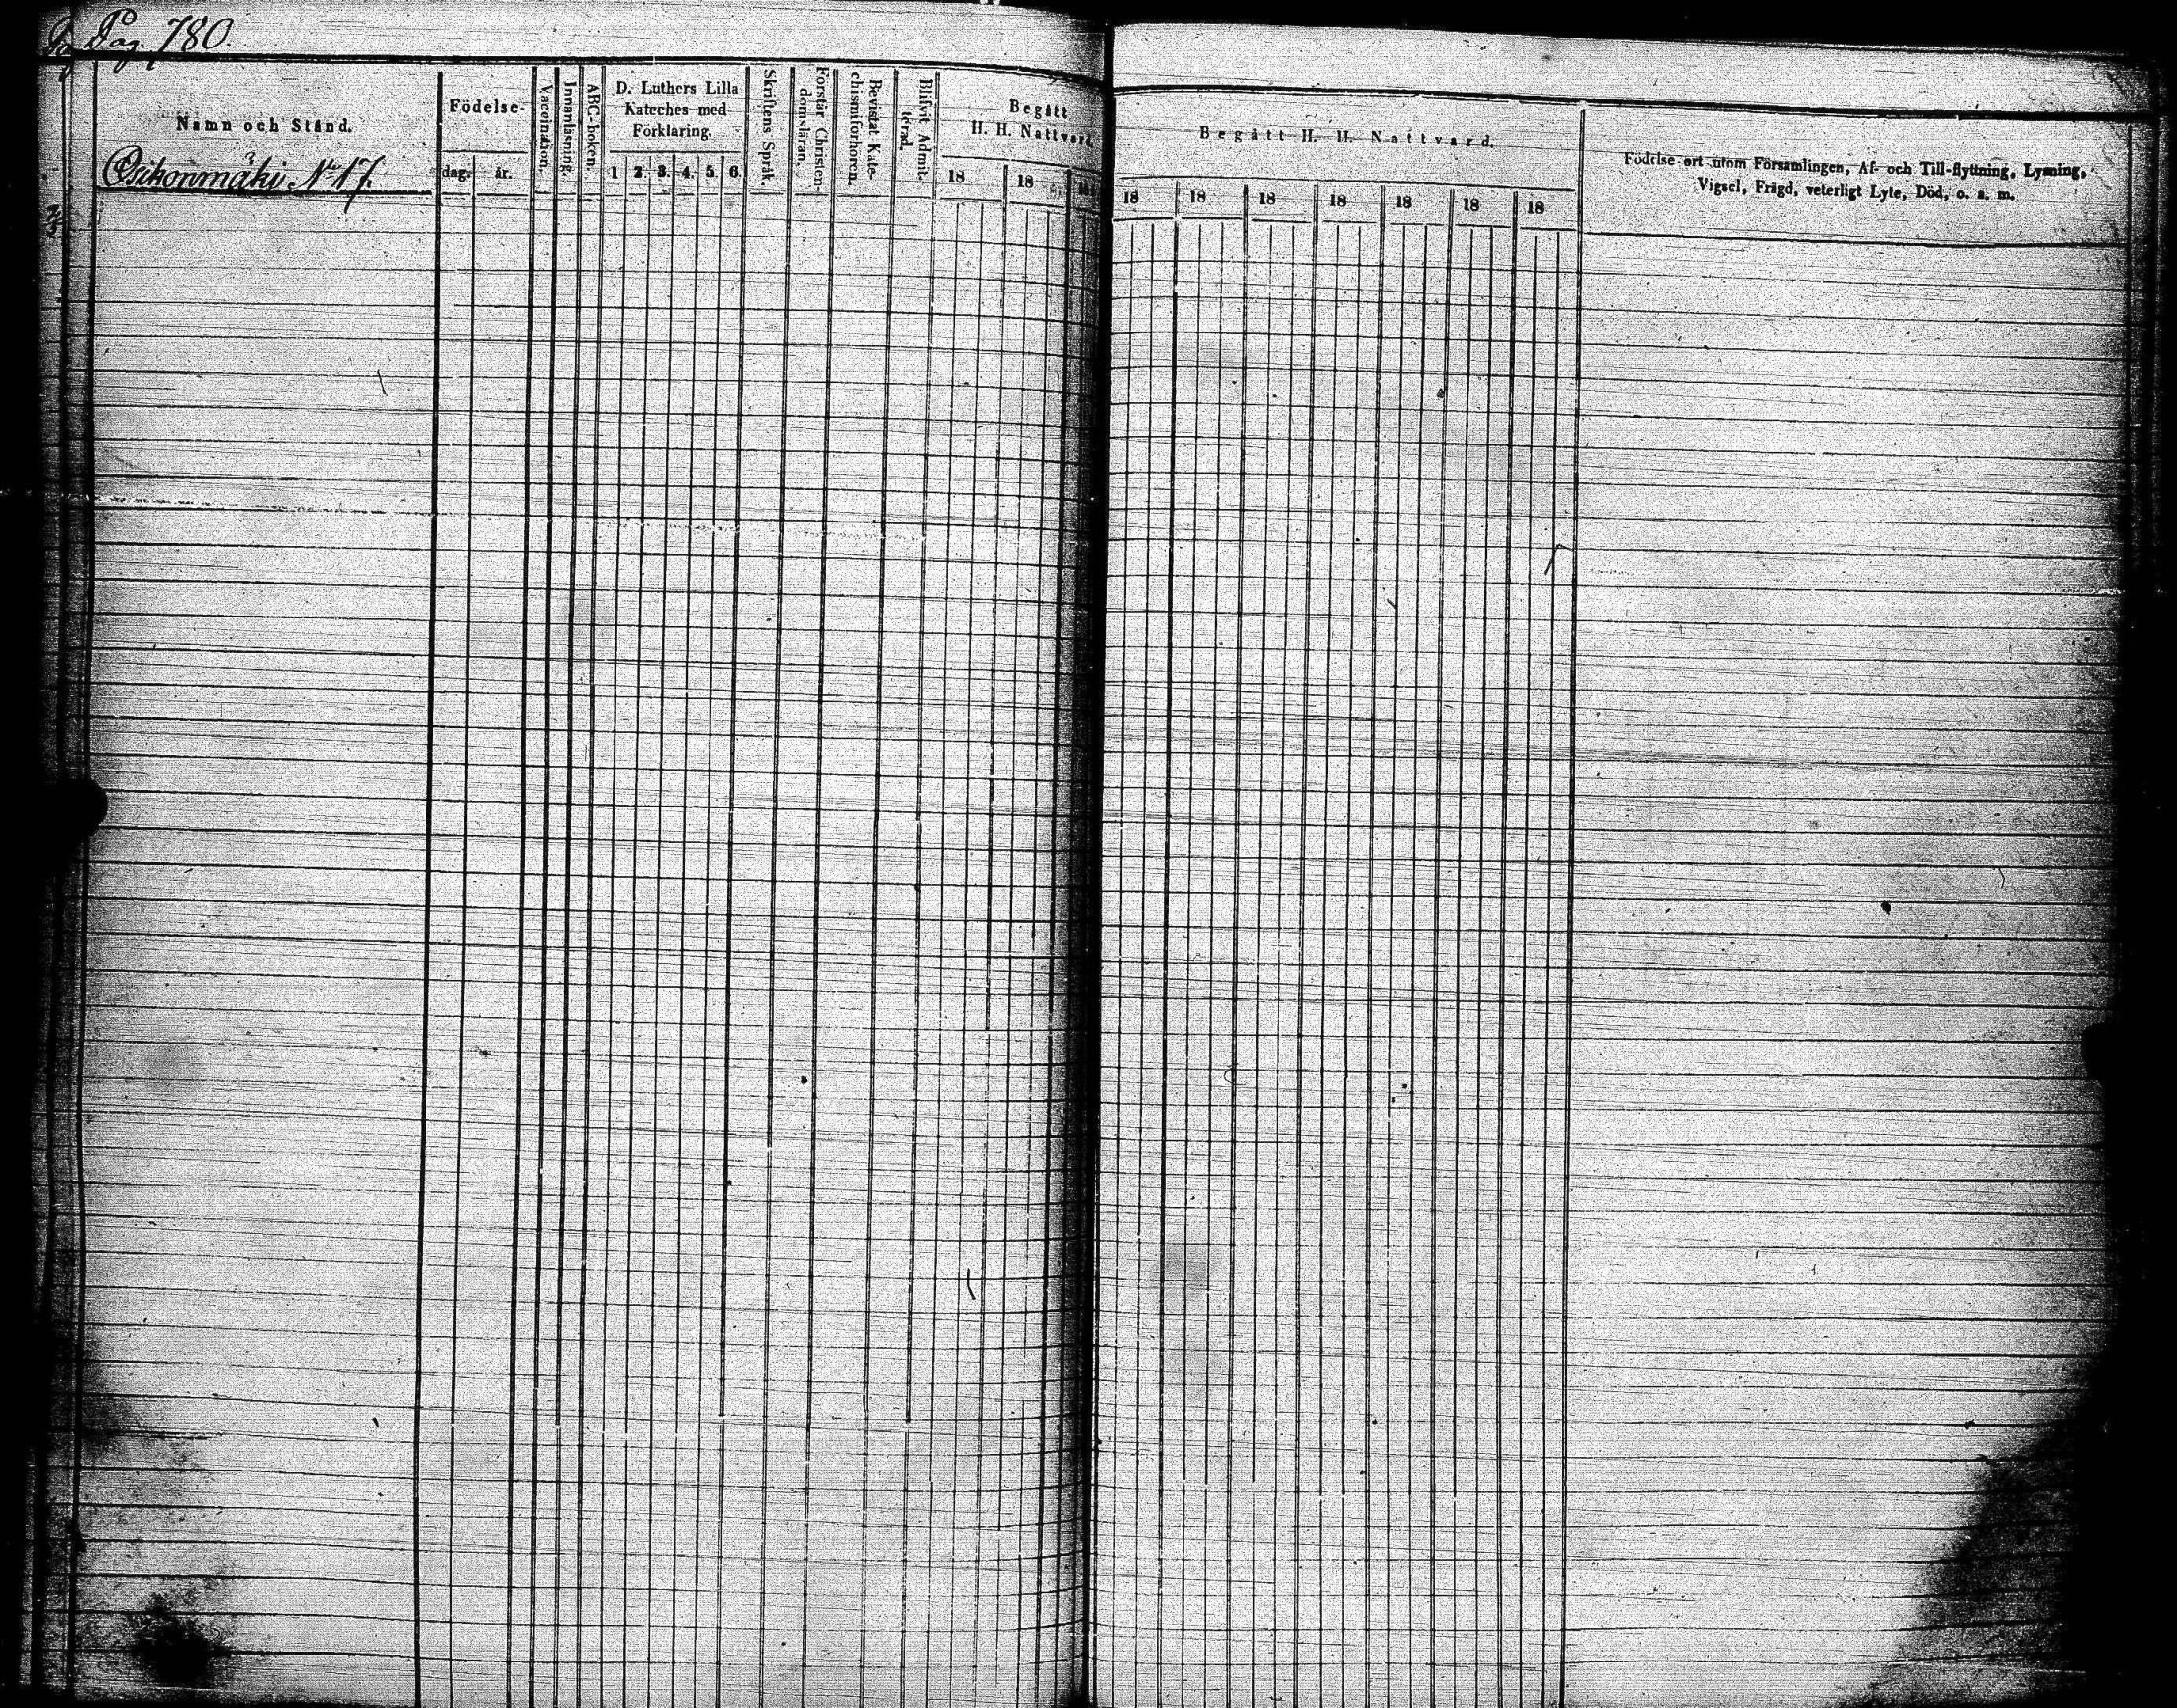 Pag. 780.
Namn och Stånd.
Födelse-
dag.
år.
Vaccination.
Innanläsning.
ABC-boken.
D. Luthers Lilla
Kateches med
Förklaring.
1 2. 3. 4. 5. 6.
Skriftens Språk.
Förstår Christen-
domsläran.
Bevistat Kate-
chismiförhören.
Blifvit Admit-
terad.
Begått
H. H. Nattvard.
18 18 18
Begått H. H. Nattvard.
18 18 18 18 18 18 18
Födelse-ort utom Församlingen, Af- och Till-flyttning, Lysning,
Vigsel, Frägd, veterligt Lyte, Död, o. a. m.
Pitkänmäki No 17.